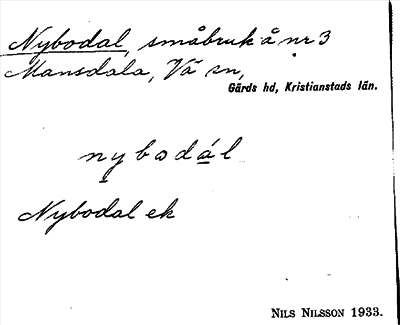 Nybodal, småbruk å nr 3
Mansdala, Vä sn,
Gärds hd, Kristianstads län.
nybodál
Nybodal ek
NILS NILSSON 1933.